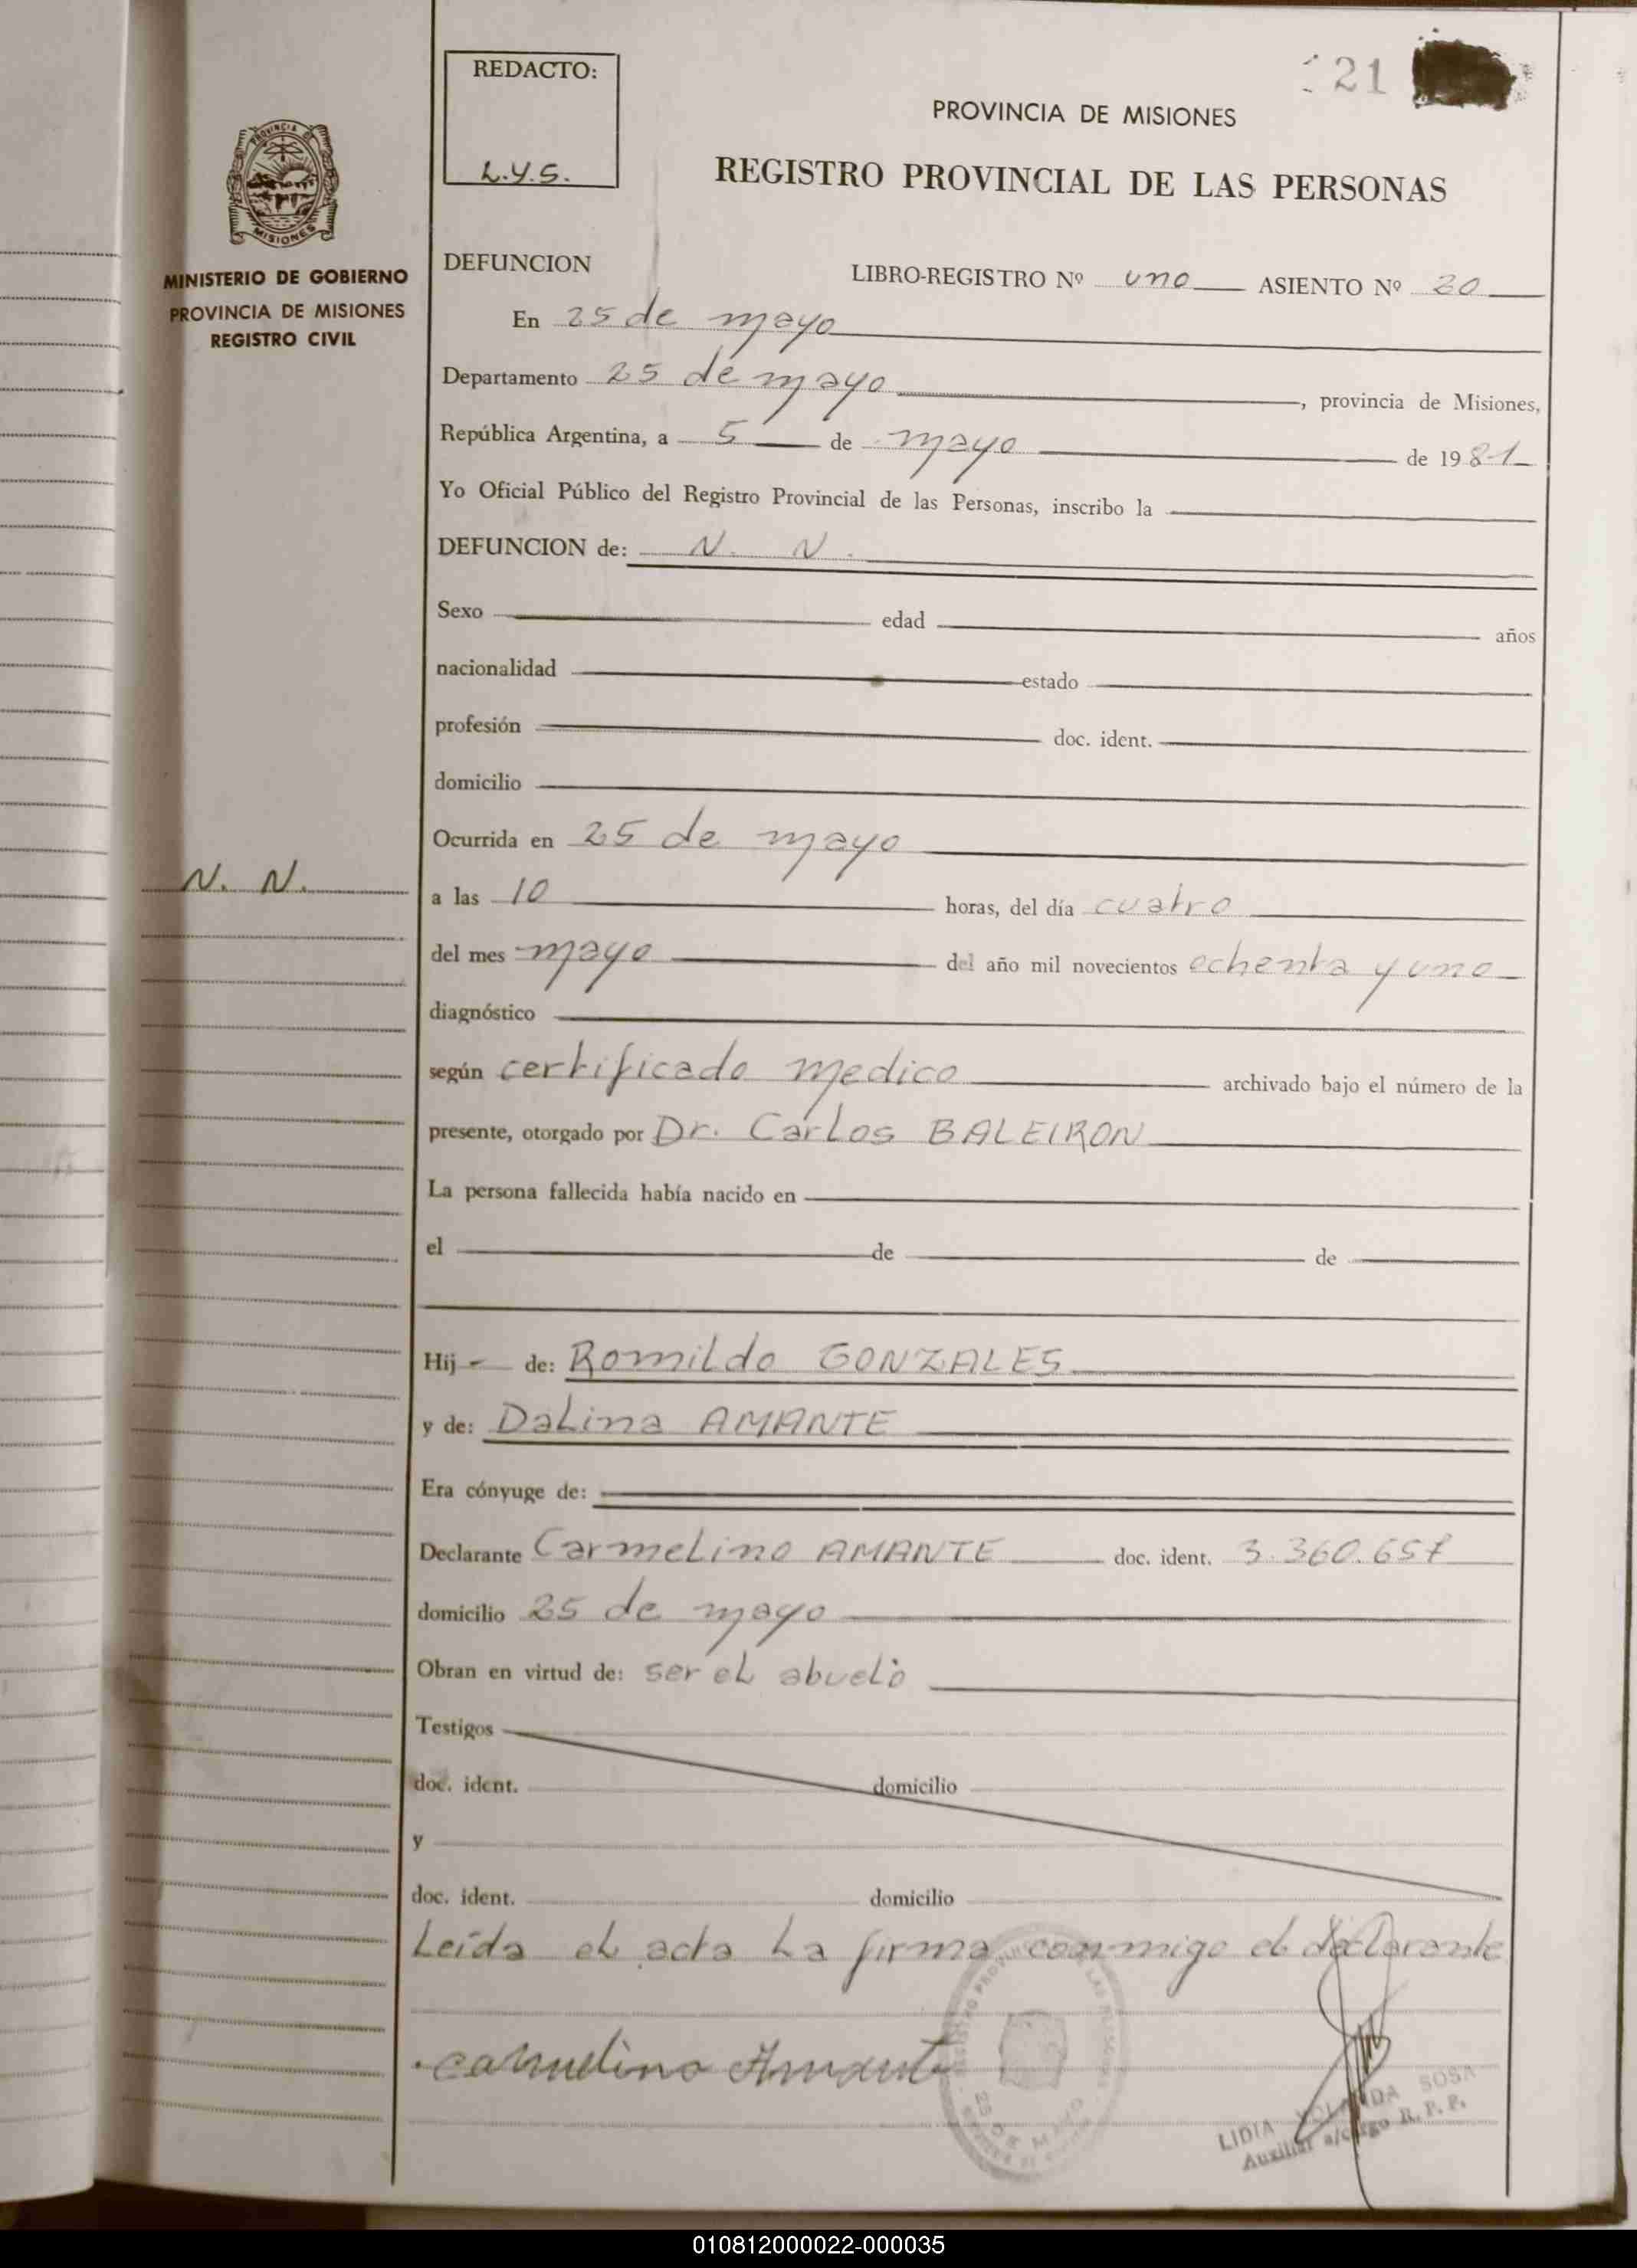 REDACTO:
L.Y.S.
21
PROVINCIA DE MISIONES
REGISTRO PROVINCIAL DE LAS PERSONAS
PROVINCIA DE
MISIONES
MINISTERIO DE GOBIERNO
PROVINCIA DE MISIONES
REGISTRO CIVIL
DEFUNCION
LIBRO-REGISTRO Nº uno ASIENTO Nº 20
En 25 de mayo
Departamento 25 de mayo, provincia de Misiones,
República Argentina, a 5 de mayo de 1981
Yo Oficial Público del Registro Provincial de las Personas, inscribo la
DEFUNCION de: N. N.
Sexo edad años
nacionalidad estado
profesión doc. ident.
domicilio
Ocurrida en 25 de mayo
N. N.
a las 10 horas, del día cuatro
del mes mayo del año mil novecientos ochenta y uno
diagnóstico
según certificado medico archivado bajo el número de la
presente, otorgado por Dr. Carlos BALEIRON
La persona fallecida había nacido en
el de de
Hij - de: Romildo GONZALES
y de: Dalina AMANTE
Era cónyuge de:
Declarante Carmelino AMANTE doc. ident. 3.360.657
domicilio 25 de mayo
Obran en virtud de: ser el abuelo
Testigos
doc. ident. domicilio
y
doc. ident. domicilio
Leída el acta la firma conmigo el declarante
Carmelino Amante
25 DE MAYO
LIDIA YOLANDA SOSA
Auxiliar a/cargo R. P. P.
010812000022-000035